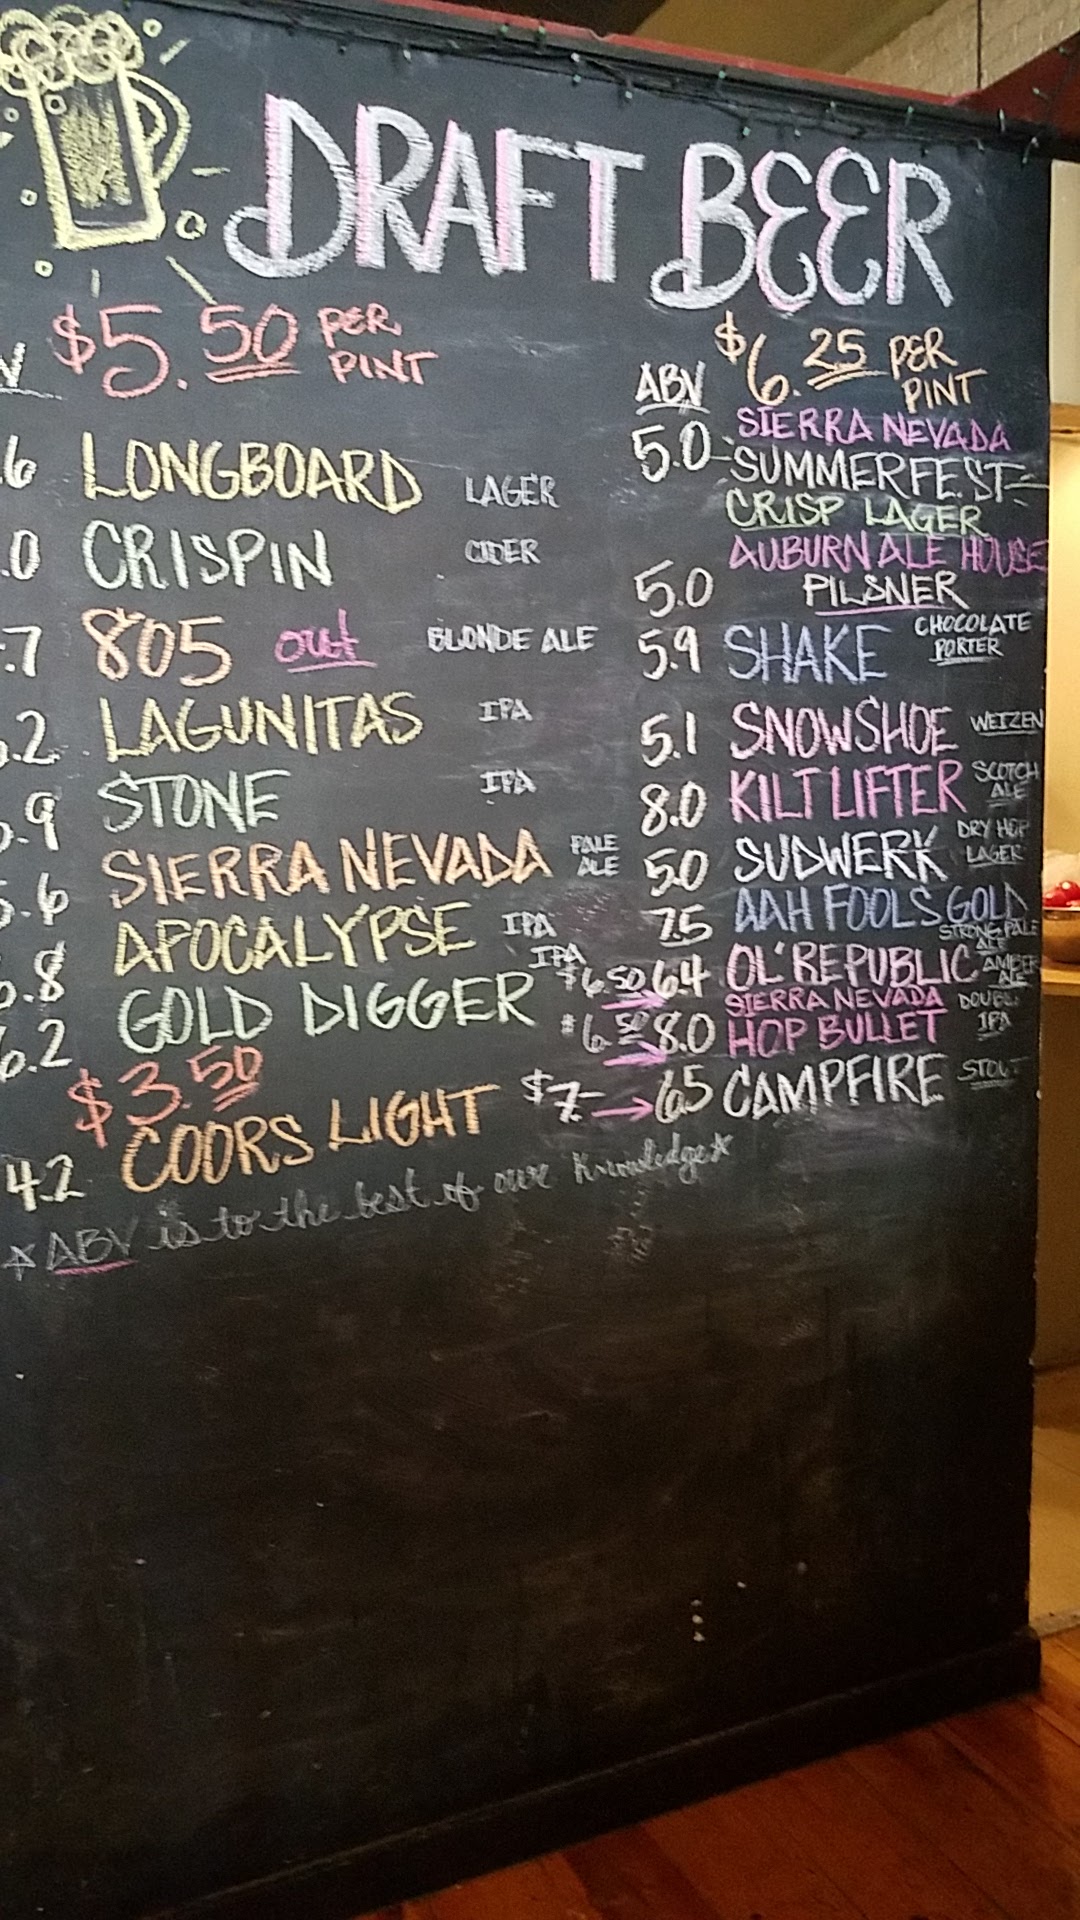 DRAFT BEER
$5.50 PER PINT
V
.6 LONGBOARD LAGER
.0 CRISPIN CIDER
.7 805 out BLONDE ALE
.2 LAGUNITAS IPA
.9 STONE IPA
5.6 SIERRA NEVADA PALE ALE
6.8 APOCALYPSE IPA
6.2 GOLD DIGGER IPA
$3.50
4.2 COORS LIGHT
*ABV is to the best of our knowledge*
$6.25 PER PINT
ABV
5.0 - SIERRA NEVADA
SUMMERFEST -
CRISP LAGER
AUBURN ALE HOUSE
5.0 PILSNER
5.9 SHAKE CHOCOLATE PORTER
5.1 SNOWSHOE WEIZEN
8.0 KILT LIFTER SCOTCH ALE
5.0 SUDWERK DRY HOP LAGER
7.5 AAH FOOLS GOLD STRONG PALE ALE
$6.50 6.4 OL' REPUBLIC AMBER ALE
SIERRA NEVADA
$6.50 8.0 HOP BULLET DOUBLE IPA
$7- → 6.5 CAMPFIRE STOUT